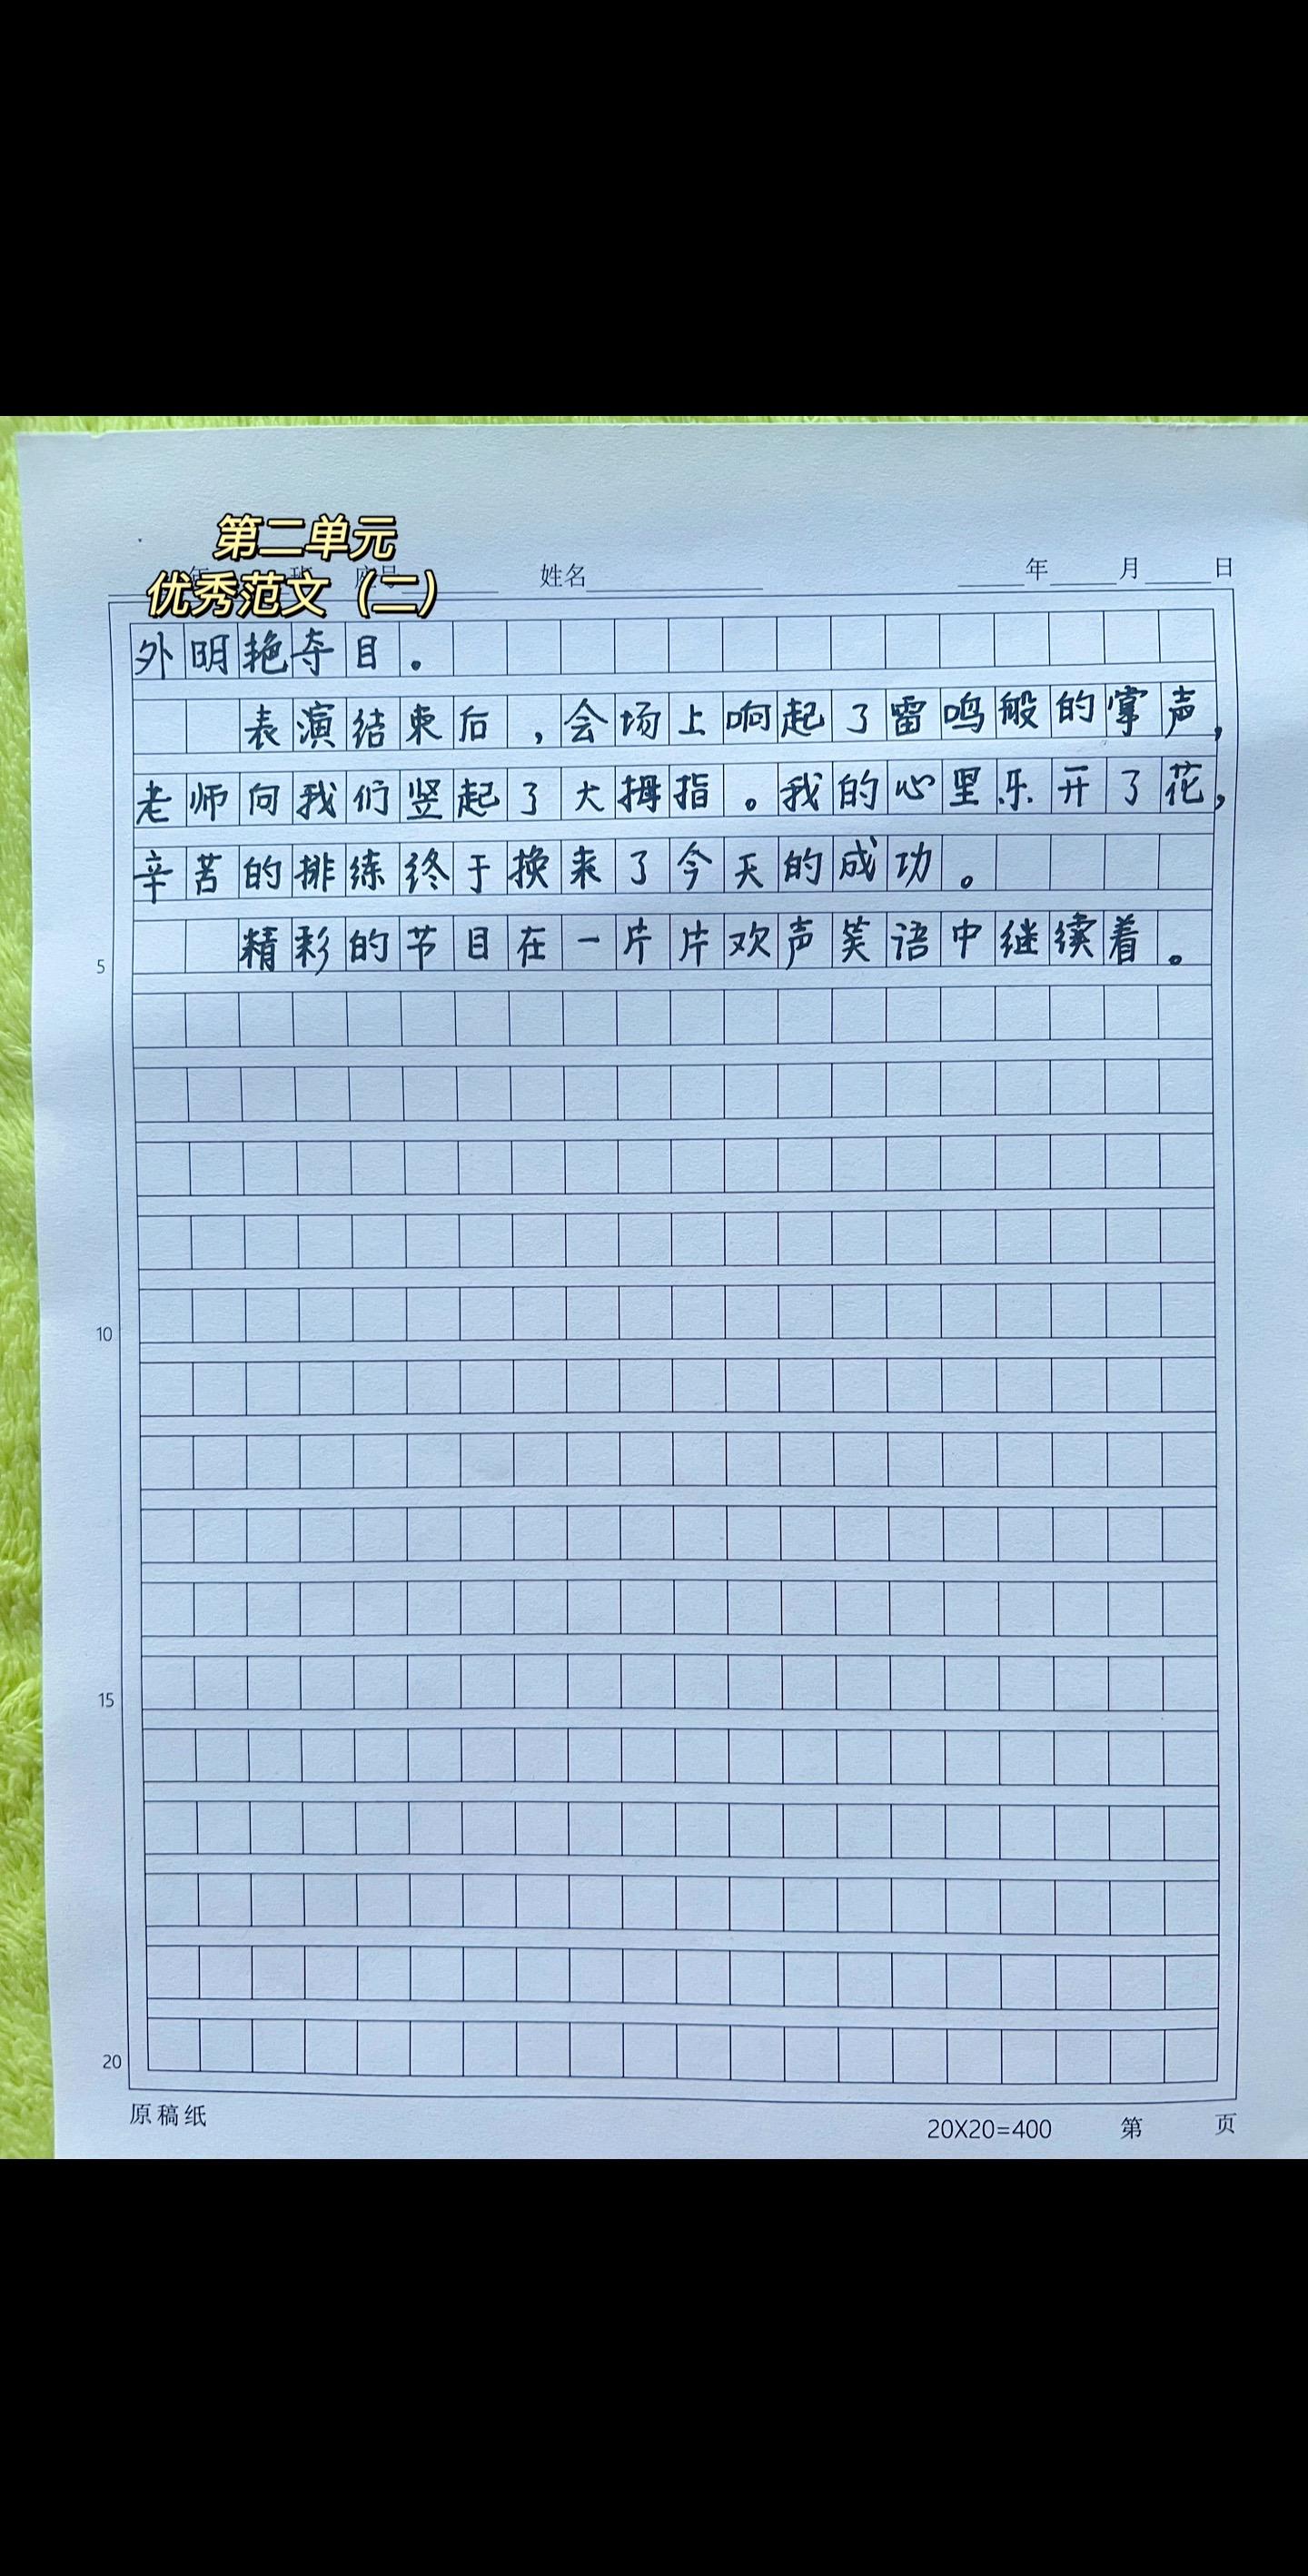 第二单元
优秀范文（二）
年 班 座号 姓名 年 月 日
外明艳夺目。
表演结束后，会场上响起了雷鸣般的掌声，
老师向我们竖起了大拇指。我的心里乐开了花，
辛苦的排练终于换来了今天的成功。
精彩的节目在一片片欢声笑语中继续着。
5
10
15
20
原稿纸 20X20=400 第 页